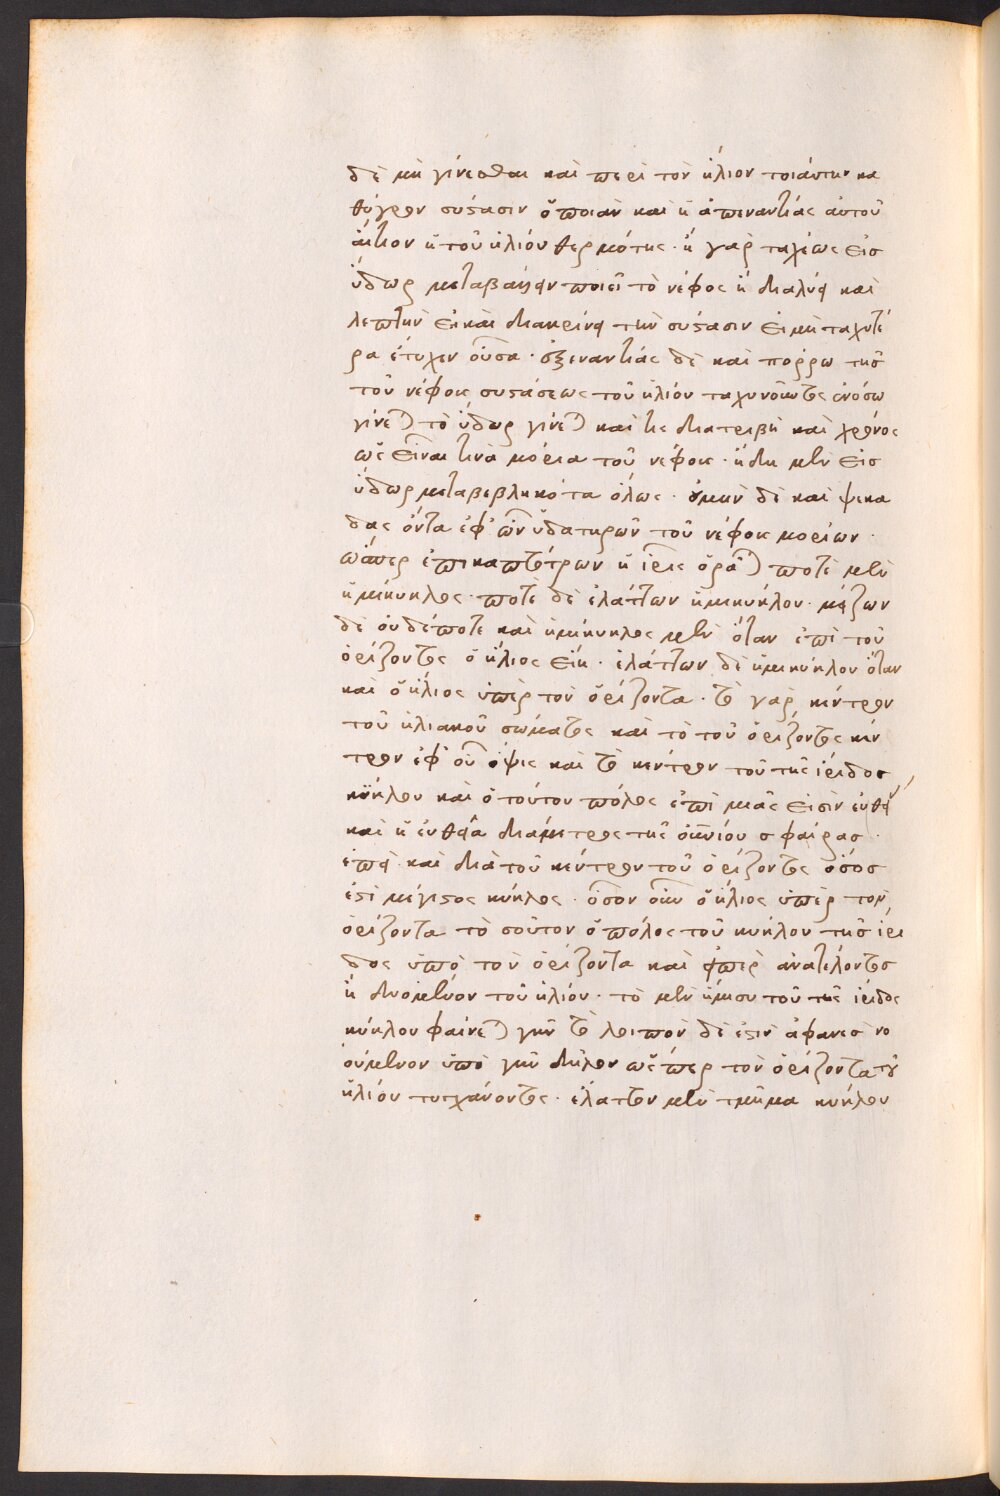 δὲ μὴ γίνεσθαι καὶ περὶ τὸν ἥλιον τοιάυτην κα
θύγρον σύστασιν ὅποιαν καὶ ἡ ἀπεναντίας αὐτοῦ
αἴτιον ἡ τοῦ ἡλίου θερμότης · ἢ γὰρ ταχέως εἰσ
ὕδωρ μεταβαλεῖν ποιεῖ τὸ νέφος ἢ διαλύει καὶ
λεπτὴν εἰ καὶ διακρίνει τὴν σύστασιν εἰ μὴ παχυτέ
ρα ἔτυχεν οὖσα · ἐξεναντίας δὲ καὶ πόρρω τῆσ
τοῦ νέφους συστάσεως τοῦ ἡλίου παχυνοῦντος ἐν ὅσω
γίνεται τὸ ὕδωρ γίνεται καί τις διατριβὴ καὶ χρόνος
ὡς εἶναι τινὰ μόρια τοῦ νέφους · ἤδη μὲν εἰσ
ὕδωρ μεταβεβληκότα ὅλως · ὁμὴν δὲ καὶ ψεκα
δας ὄντα ἐφ' ὧν ὑδατηρῶν τοῦ νέφους μορίων ·
ὥσπερ ἐπι καπτότρων ἡ ἶρις ὁρᾶται ποτὲ μὲν
ἡμίκυκλος · ποτὲ δὲ ἐλάττων ἡμικύκλου · μείζων
δὲ οὐδέποτε καὶ ἡμίκυκλος μὲν ὅταν ἐπὶ τοῦ
ὁρίζοντος ὁ ἥλιος εἴη · ἐλάττων δὲ ἡμικύκλου ὅταν
καὶ ὁ ἥλιος ὑπὲρ τὸν ὁρίζοντα · τὸ γὰρ κέντρον
τοῦ ἡλιακοῦ σώματος καὶ τὸ τοῦ ὁρίζοντος κέν
τρον ἐφ' οὗ ὄψις καὶ τὸ κέντρον τοῦ τῆς ἴριδος
κύκλου καὶ ὁ τούτου πόλος ἐπὶ μιᾶς εἰσὶν εὐθεί
καὶ ἡ εὐθεῖα διάμετρος τῆς οὐνίου σφαίρασ ·
ἐπεὶ καὶ διὰ τοῦ κέντρου τοῦ ὁρίζοντος ὅσος
ἐστὶ μέγιστος κύκλος · ὅσον οὖν ὁ ἥλιος ὑπὲρ τὸν
ὁρίζοντα τὸ σοῦτον ὁ πόλος τοῦ κύκλου τῆσ ἴρι
δος ὑπὸ τὸν ὁρίζοντα καὶ ὥπερ ἀνατέλοντοσ
ἢ δυομένου τοῦ ἡλίου · τὸ μὲν ἥμισυ τοῦ τῆς ἴριδος
κύκλου φαίνεται γῆν τὸ λοιπὸν δὲ ἐστὶν ἀφανεσ νο
ούμενον ὑπὸ γῆν δῆλον ὡς ὑπερ τὸν ὁρίζοντα τοῦ
ἡλίου τυγχάνοντος · ἔλαττον μὲν τμῆμα κύκλου